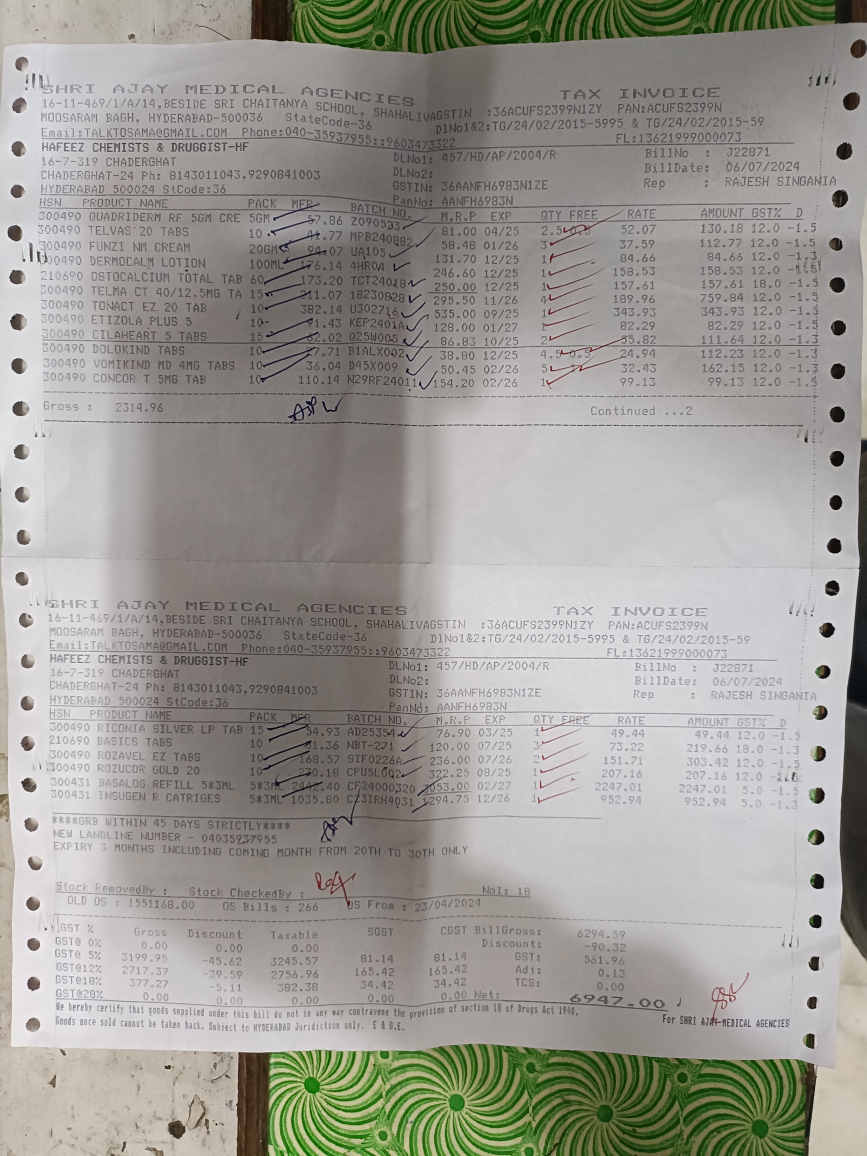 SHRI AJAY MEDICAL AGENCIES TAX INVOICE
16-11-469/1/A/14,BESIDE SRI CHAITANYA SCHOOL, SHAHALIVAGSTIN :36ACUFS2399N1ZY PAN:ACUFS2399N
MOOSARAM BAGH, HYDERABAD-500036 StateCode-36 DlNo1&2:TG/24/02/2015-5995 & TG/24/02/2015-59
Email:TALKTOSAMA@GMAIL.COM Phone:040-35937955::9603473322 FL:13621999000073
HAFEEZ CHEMISTS & DRUGGIST-HF DLNo1: 457/HD/AP/2004/R BillNo : J22871
16-7-319 CHADERGHAT DLNo2: BillDate: 06/07/2024
CHADERGHAT-24 Ph: 8143011043,9290841003 GSTIN: 36AANFH6983N1ZE Rep : RAJESH SINGANIA
HYDERABAD 500024 StCode:36 PanNo: AANFH6983N
HSN PRODUCT NAME PACK MFR BATCH NO. M.R.P EXP QTY FREE RATE AMOUNT GST% D
300490 QUADRIDERM RF 5GM CRE 5GM 57.86 Z090533 81.00 04/25 2.5 0.5 52.07 130.18 12.0 -1.5
300490 TELVAS 20 TABS 10 41.77 MPB240882 58.48 01/26 3 37.59 112.77 12.0 -1.5
300490 FUNZI NM CREAM 20GM 94.07 UA105 131.70 12/25 1 84.66 84.66 12.0 -1.3
300490 DERMOCALM LOTION 100ML 176.14 4HR0A 246.60 12/25 1 158.53 158.53 12.0
210690 OSTOCALCIUM TOTAL TAB 60 173.20 TCT24018 250.00 12/25 1 157.61 157.61 18.0 -1.5
300490 TELMA CT 40/12.5MG TA 15 211.07 18230828 295.50 11/26 4 189.96 759.84 12.0 -1.5
300490 TONACT EZ 20 TAB 10 382.14 U302716 535.00 09/25 1 343.93 343.93 12.0 -1.5
300490 ETIZOLA PLUS 5 10 91.43 KEP2401A 128.00 01/27 1 82.29 82.29 12.0 -1.5
300490 CILAHEART 5 TABS 15 62.02 025W005 86.83 10/25 2 55.82 111.64 12.0 -1.5
300490 DOLOKIND TABS 10 27.71 B1ALX002 38.80 12/25 4.5 0.5 24.94 112.23 12.0 -1.5
300490 VOMIKIND MD 4MG TABS 10 36.04 D45X009 50.45 02/26 5 32.43 162.15 12.0 -1.5
300490 CONCOR T 5MG TAB 10 110.14 N29RF24011 154.20 02/26 1 99.13 99.13 12.0 -1.5
Gross : 2314.96 Continued ...2
SHRI AJAY MEDICAL AGENCIES TAX INVOICE
16-11-469/1/A/14,BESIDE SRI CHAITANYA SCHOOL, SHAHALIVAGSTIN :36ACUFS2399N1ZY PAN:ACUFS2399N
MOOSARAM BAGH, HYDERABAD-500036 StateCode-36 DlNo1&2:TG/24/02/2015-5995 & TG/24/02/2015-59
Email:TALKTOSAMA@GMAIL.COM Phone:040-35937955::9603473322 FL:13621999000073
HAFEEZ CHEMISTS & DRUGGIST-HF DLNo1: 457/HD/AP/2004/R BillNo : J22871
16-7-319 CHADERGHAT DLNo2: BillDate: 06/07/2024
CHADERGHAT-24 Ph: 8143011043,9290841003 GSTIN: 36AANFH6983N1ZE Rep : RAJESH SINGANIA
HYDERABAD 500024 StCode:36 PanNo: AANFH6983N
HSN PRODUCT NAME PACK MFR BATCH NO. M.R.P EXP QTY FREE RATE AMOUNT GST% D
300490 RICONIA SILVER LP TAB 15 54.93 AD25354 76.90 03/25 1 49.44 49.44 12.0 -1.5
210690 BASICS TABS 10 81.36 NBT-271 120.00 07/25 3 73.22 219.66 18.0 -1.3
300490 ROZAVEL EZ TABS 10 168.57 SIF0226A 236.00 07/26 2 151.71 303.42 12.0 -1.5
300490 ROZUCOR GOLD 20 10 230.18 CPU5L002 322.25 08/25 1 207.16 207.16 12.0
300431 BASALOG REFILL 5*3ML 5*3ML 2442.40 CF24000320 3053.00 02/27 1 2247.01 2247.01 5.0 -1.5
300431 INSUGEN R CATRIGES 5*3ML 1035.80 C23IRH4031 1294.75 12/26 1 952.94 952.94 5.0 -1.3
****GRB WITHIN 45 DAYS STRICTLY****
NEW LANDLINE NUMBER - 04035937955
EXPIRY 3 MONTHS INCLUDING COMING MONTH FROM 20TH TO 30TH ONLY
Stock RemovedBy : Stock CheckedBy : NoI: 18
OLD OS : 1551168.00 OS Bills : 266 OS From : 23/04/2024
GST % Gross Discount Taxable SGST CGST BillGross: 6294.59
GST@ 0% 0.00 0.00 0.00 Discount: -90.32
GST@ 5% 3199.95 -45.62 3245.57 81.14 81.14 GST: 561.96
GST@12% 2717.37 -39.59 2756.96 165.42 165.42 Adj: 0.13
GST@18% 377.27 -5.11 382.38 34.42 34.42 TCS: 0.00
GST@28% 0.00 0.00 0.00 0.00 0.00 Net: 6947.00
We hereby certify that goods supplied under this bill do not in any way contravene the provision of section 18 of Drugs Act 1940.
Goods once sold cannot be taken back. Subject to HYDERABAD Juridiction only. E & O.E. For SHRI AJAY MEDICAL AGENCIES